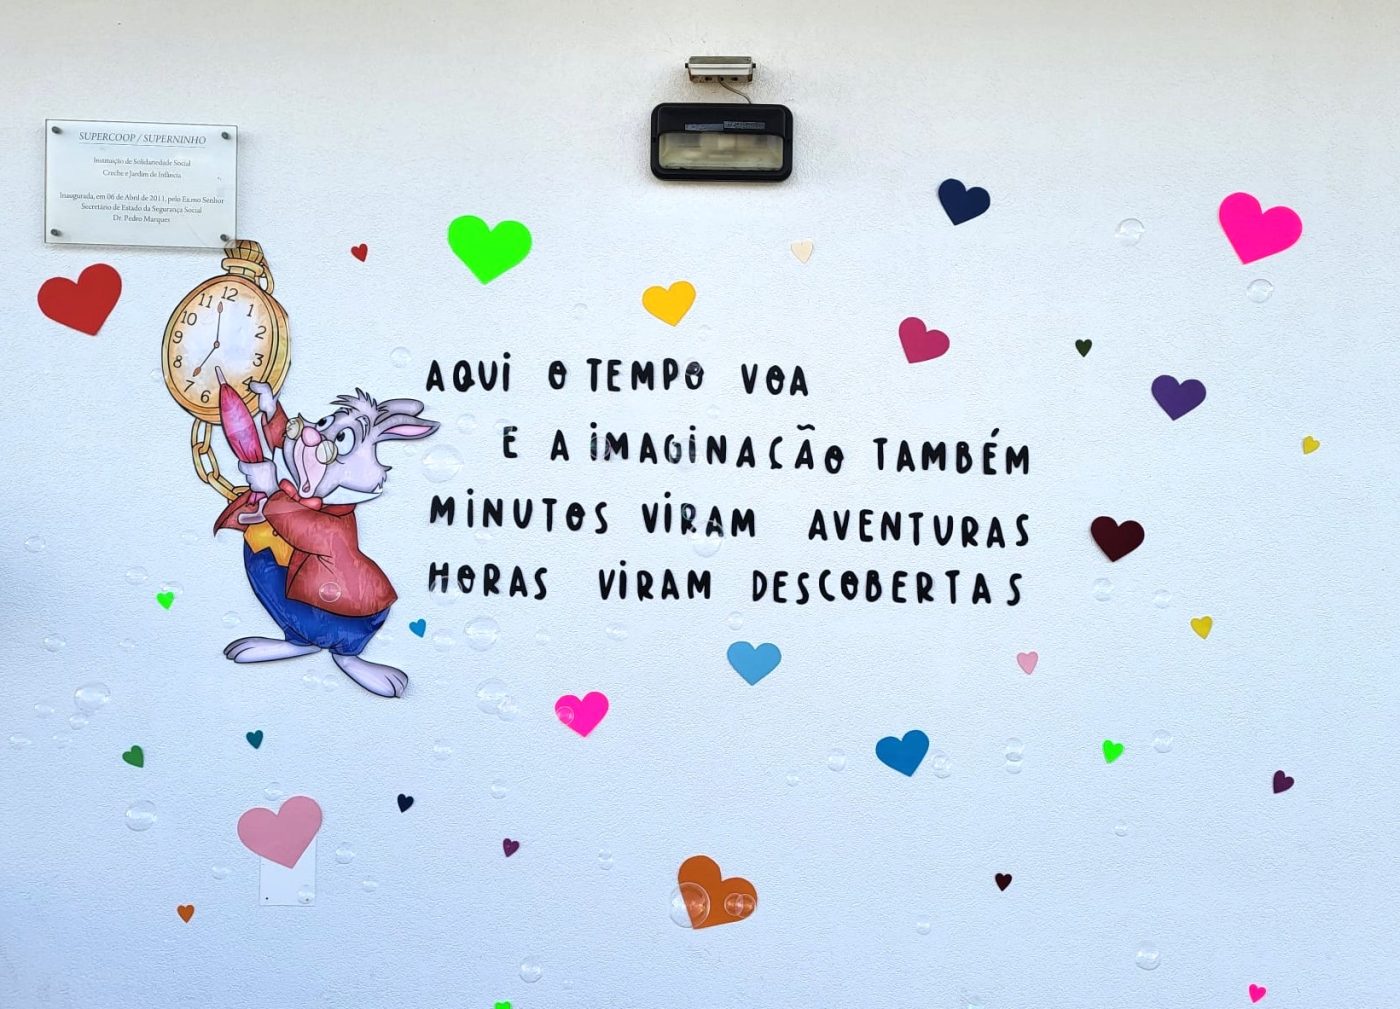 SUPERCOOP / SUPERNINHO
Instituição de Solidariedade Social
Creche e Jardim de Infância
Inaugurada, em 06 de Abril de 2011, pelo Ex.mo Senhor
Secretário de Estado da Segurança Social
Dr. Pedro Marques
11 12 1
10 2
9 3
8 4
7 6
AQUI O TEMPO VOA
E A IMAGINAÇÃO TAMBÉM
MINUTOS VIRAM AVENTURAS
HORAS VIRAM DESCOBERTAS